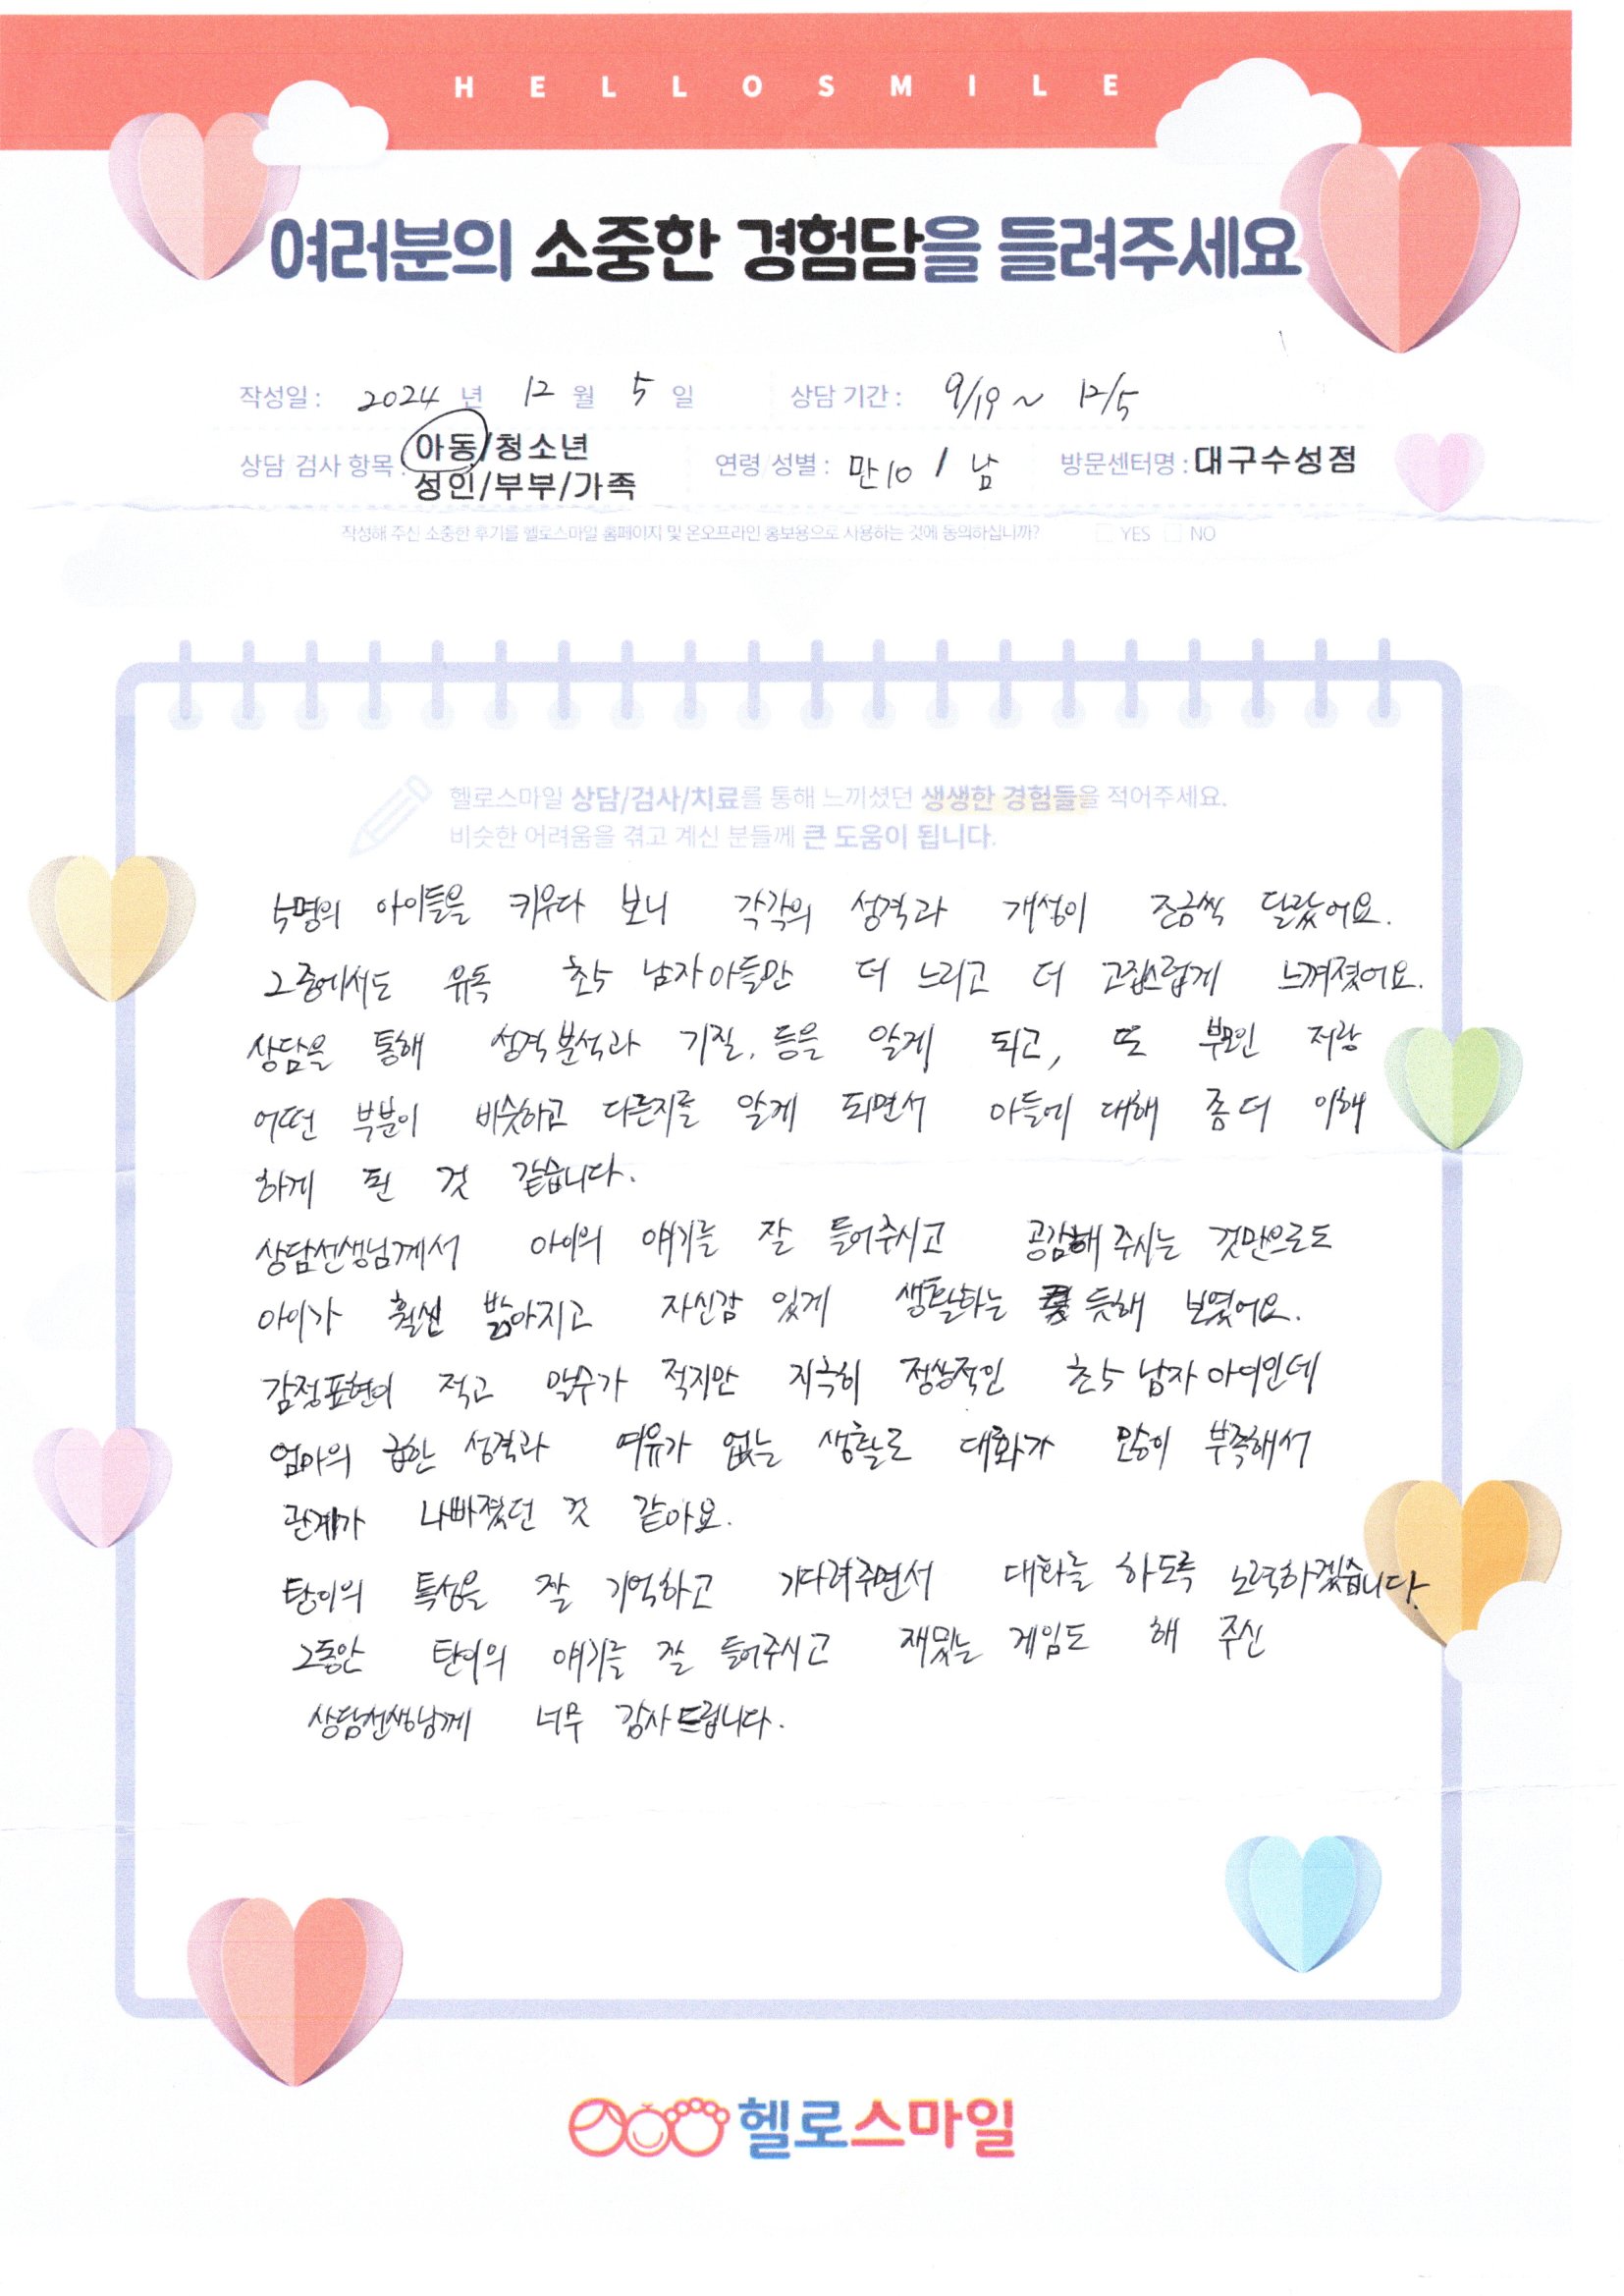 HELLOSMILE
여러분의 소중한 경험담을 들려주세요
작성일 : 2024 년 12 월 5 일 상담 기간 : 9/19 ~ 12/5
상담 검사 항목 : 아동/청소년 성인/부부/가족 연령 성별 : 만10 / 남 방문센터명 : 대구수성점
작성해 주신 소중한 후기를 헬로스마일 홈페이지 및 온오프라인 홍보용으로 사용하는 것에 동의하십니까? YES NO
헬로스마일 상담/검사/치료를 통해 느끼셨던 생생한 경험들을 적어주세요.
비슷한 어려움을 겪고 계신 분들께 큰 도움이 됩니다.
5명의 아이들을 키우다 보니 각각의 성격과 개성이 조금씩 달랐어요.
그 중에서도 유독 초5 남자아들만 더 느리고 더 고집스럽게 느껴졌어요.
상담을 통해 성격분석과 기질, 등을 알게 되고, 또 부모인 저랑
어떤 부분이 비슷하고 다른지를 알게 되면서 아들에 대해 좀 더 이해
하게 된 것 같습니다.
상담선생님께서 아이의 얘기를 잘 들어주시고 공감해 주시는 것만으로도
아이가 훨씬 밝아지고 자신감 있게 생활하는 듯해 보였어요.
감정표현이 적고 말수가 적지만 지극히 정상적인 초5 남자 아이인데
엄마의 급한 성격과 여유가 없는 생활로 대화가 많이 부족해서
관계가 나빠졌던 것 같아요.
탄이의 특성을 잘 기억하고 기다려주면서 대화를 하도록 노력하겠습니다.
그동안 탄이의 얘기를 잘 들어주시고 재밌는 게임도 해 주신
상담선생님께 너무 감사드립니다.
헬로스마일